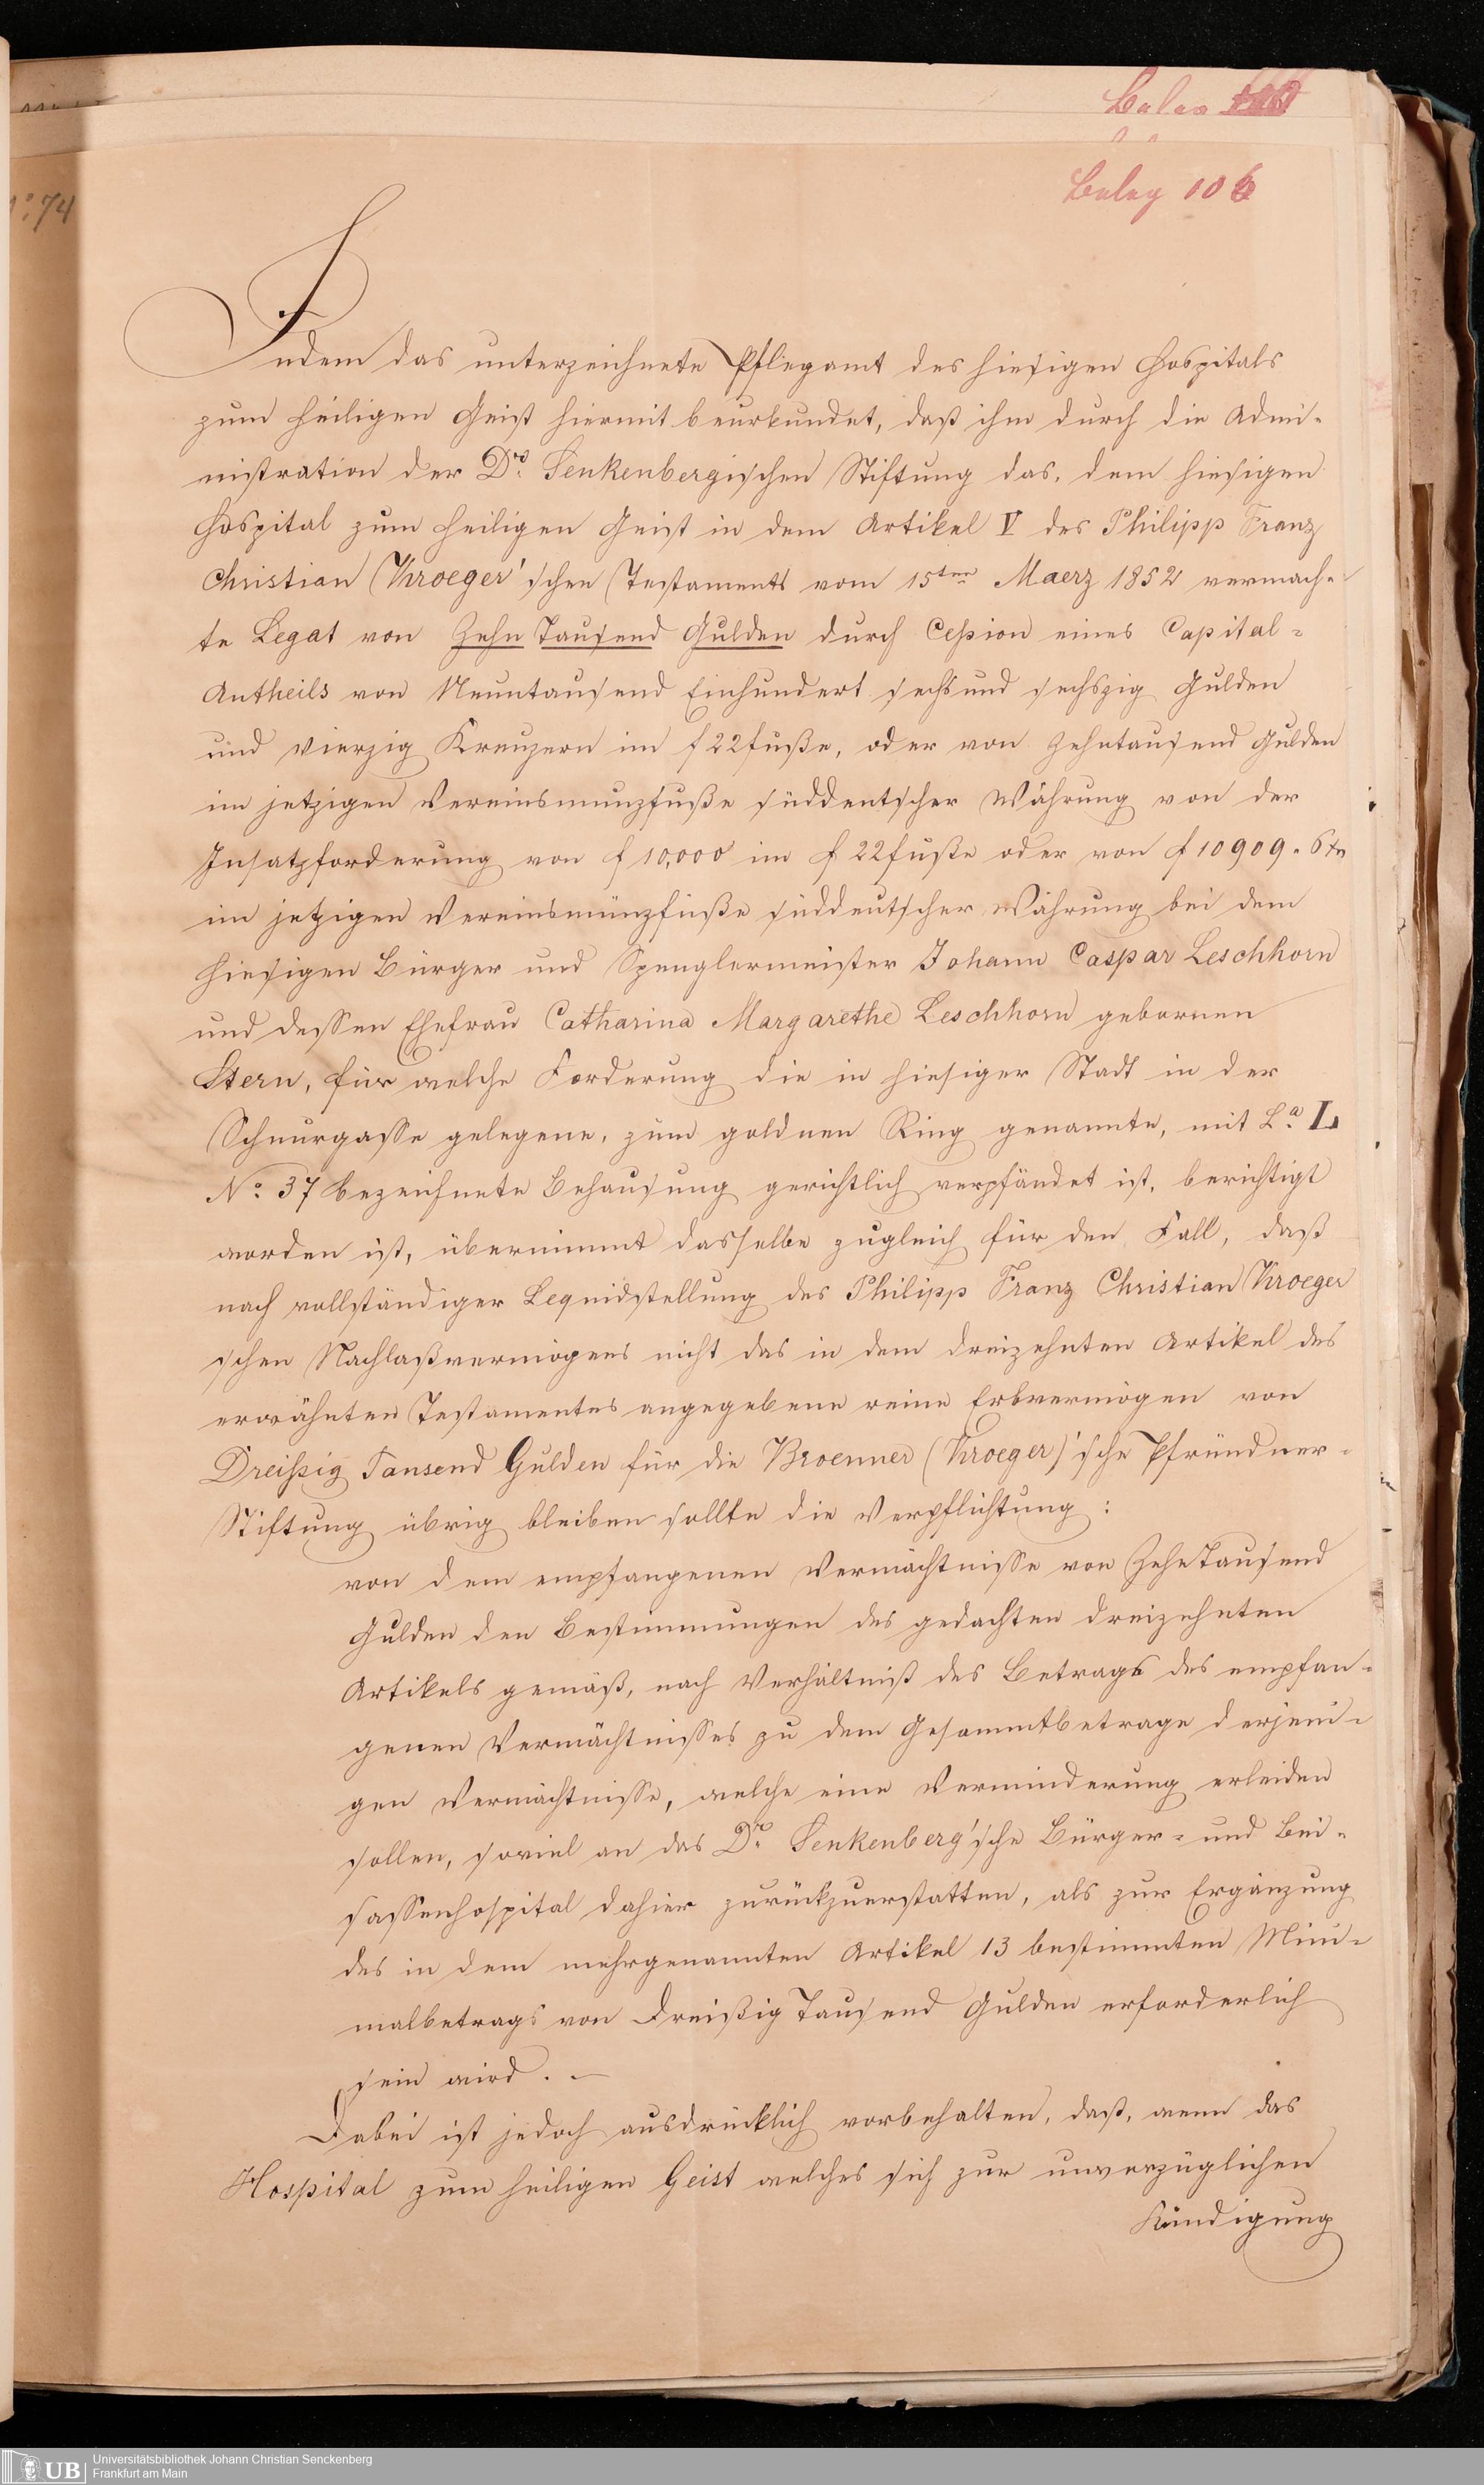 Beleg
Beleg 106
No. 74
Indem das unterzeichnete Pflegamt des hiesigen Hospitals
zum heiligen Geist hiermit beurkundet, daß ihm durch die Admi-
nistration der Dr. Senkenbergischen Stiftung das, dem hiesigen
Hospital zum heiligen Geist in dem Artikel V des Philipp Franz
Christian Kroeger'schen Testaments vom 15ten Maerz 1852 vermach-
te Legat von Zehn Tausend Gulden durch Cession eines Capital-
Antheils von Neuntausend Einhundert sechsund sechszig Gulden
und vierzig Kreuzern im f 22fuße, oder von Zehntausend Gulden
im jetzigen Vereinsmunzfuße süddeutscher Währung von der
Insatzforderung von f 10,000 im f 22fuße oder von f 10909. 5 xr
im jetzigen Vereinsmünzfuße süddeutscher Währung bei dem
hiesigen Bürger und Spenglermeister Johann Caspar Leschhorn
und dessen Ehefrau Catharina Margarethe Leschhorn gebornen
Stern, für welche Forderung die in hiesiger Stadt in der
Schnurgasse gelegene, zum goldnen Ring genannte, mit La. L
No. 37 bezeichnete Behausung gerichtlich verpfändet ist, berichtigt
worden ist, übernimmt dasselbe zugleich für den Fall, daß
nach vollständiger Lequidstellung des Philipp Franz Christian Kroeger
schen Nachlaßvermögens nicht das in dem dreizehnten Artikel des
erwähnten Testamentes angegebene reine Erbvermögen von
Dreissig Tausend Gulden für die Broenner (Kroeger)'sche Pfründner-
Stiftung übrig bleiben sollte die Verpflichtung:
von dem empfangenen Vermächtnisse von ZehnTausend
Gulden den Bestimmungen des gedachten dreizehnten
Artikels gemäß, nach Verhältniß des Betrags des empfan-
genen Vermächtnisses zu dem Gesammtbetrage derjeni-
gen Vermächtnisse, welche eine Verminderung erleiden
sollen, soviel an das Dr. Senkenberg'sche Bürger- und Bei-
sassenhospital dahier zurückzuerstatten, als zur Ergänzung
des in dem mehrgenannten Artikel 13 bestimmten Mini-
malbetrags von Dreißig Tausend Gulden erforderlich
sein wird. –
Dabei ist jedoch ausdrücklich vorbehalten, daß, wenn das
Hospital zum heiligen Geist welches sich zur unverzüglichen
Kündigung
UB
Universitätsbibliothek Johann Christian Senckenberg
Frankfurt am Main